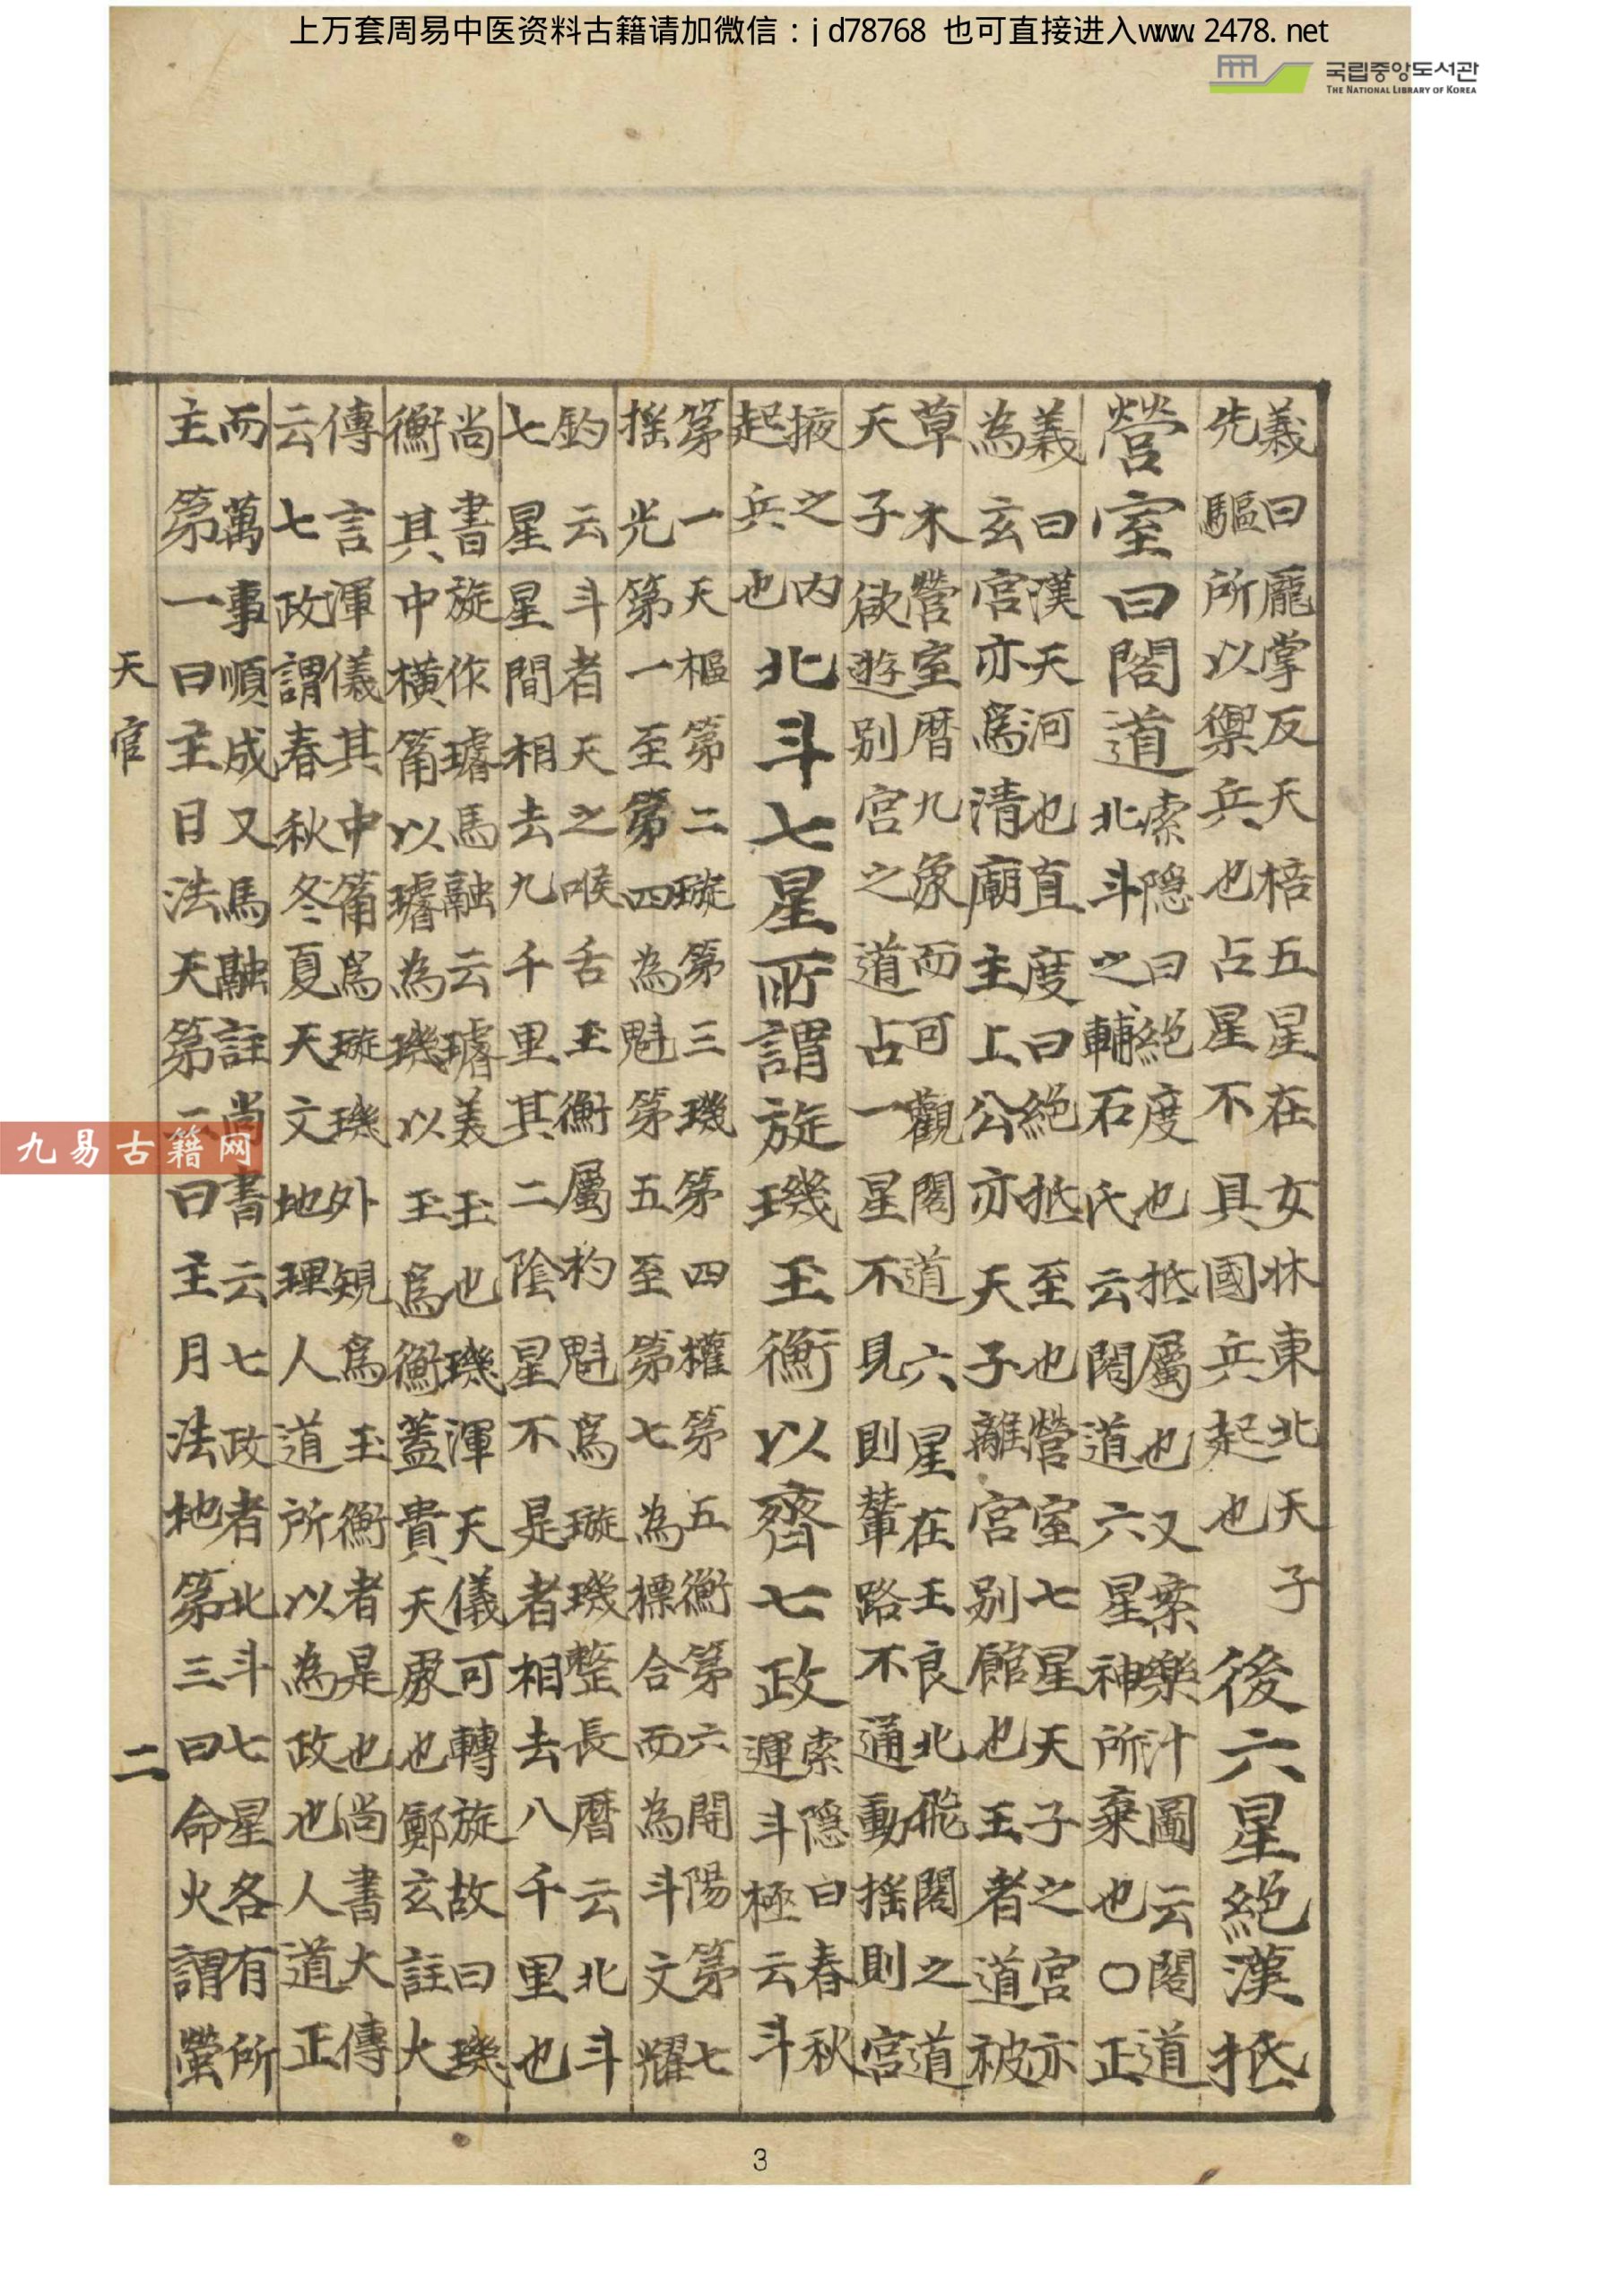 上万套周易中医资料古籍请加微信：jd78768 也可直接进入www.2478.net
국립중앙도서관
THE NATIONAL LIBRARY OF KOREA
義曰龐掌反天棓五星在女牀東北天子
先驅所以禦兵也占星不具國兵起也
後六星絕漢抵
營室曰閣道
索隐曰絕度也抵屬也又案樂汁圖云閣道
北斗之輔石氏云閣道六星神所乘也○正
義曰漢天河也直度曰絕抵至也營室七星天子之宮亦
為玄宮亦爲清廟主上公亦天子離宮别館也王者道被
草木營室曆九象而可觀閣道六星在王良北飛閣之道
天子欲遊别宮之道占一星不見則輦路不通動摇則宮
掖之内
起兵也
北斗七星所謂旋璣玉衡以齊七政
索隐曰春秋
運斗極云斗
第一天樞第二璇第三璣第四權第五衡第六開陽第七
摇光第一至第四為魁第五至第七為標合而為斗文耀
鈎云斗者天之喉舌玉衡屬杓魁爲璇璣整長曆云北斗
七星星間相去九千里其二陰星不是者相去八千里也
尚書旋作璿馬融云璿美玉也璣渾天儀可轉旋故曰璣
衡其中橫筩以璿為璣以玉爲衡蓋貴天象也鄭玄註大
傳言渾儀其中筩爲璇璣外規爲玉衡者是也尚書大傳
云七政謂春秋冬夏天文地理人道所以為政也人道正
而萬事順成又馬融註尚書云七政者北斗七星各有所
主第一曰主日法天第二曰主月法地第三曰命火謂熒
天官
二
九易古籍网
3